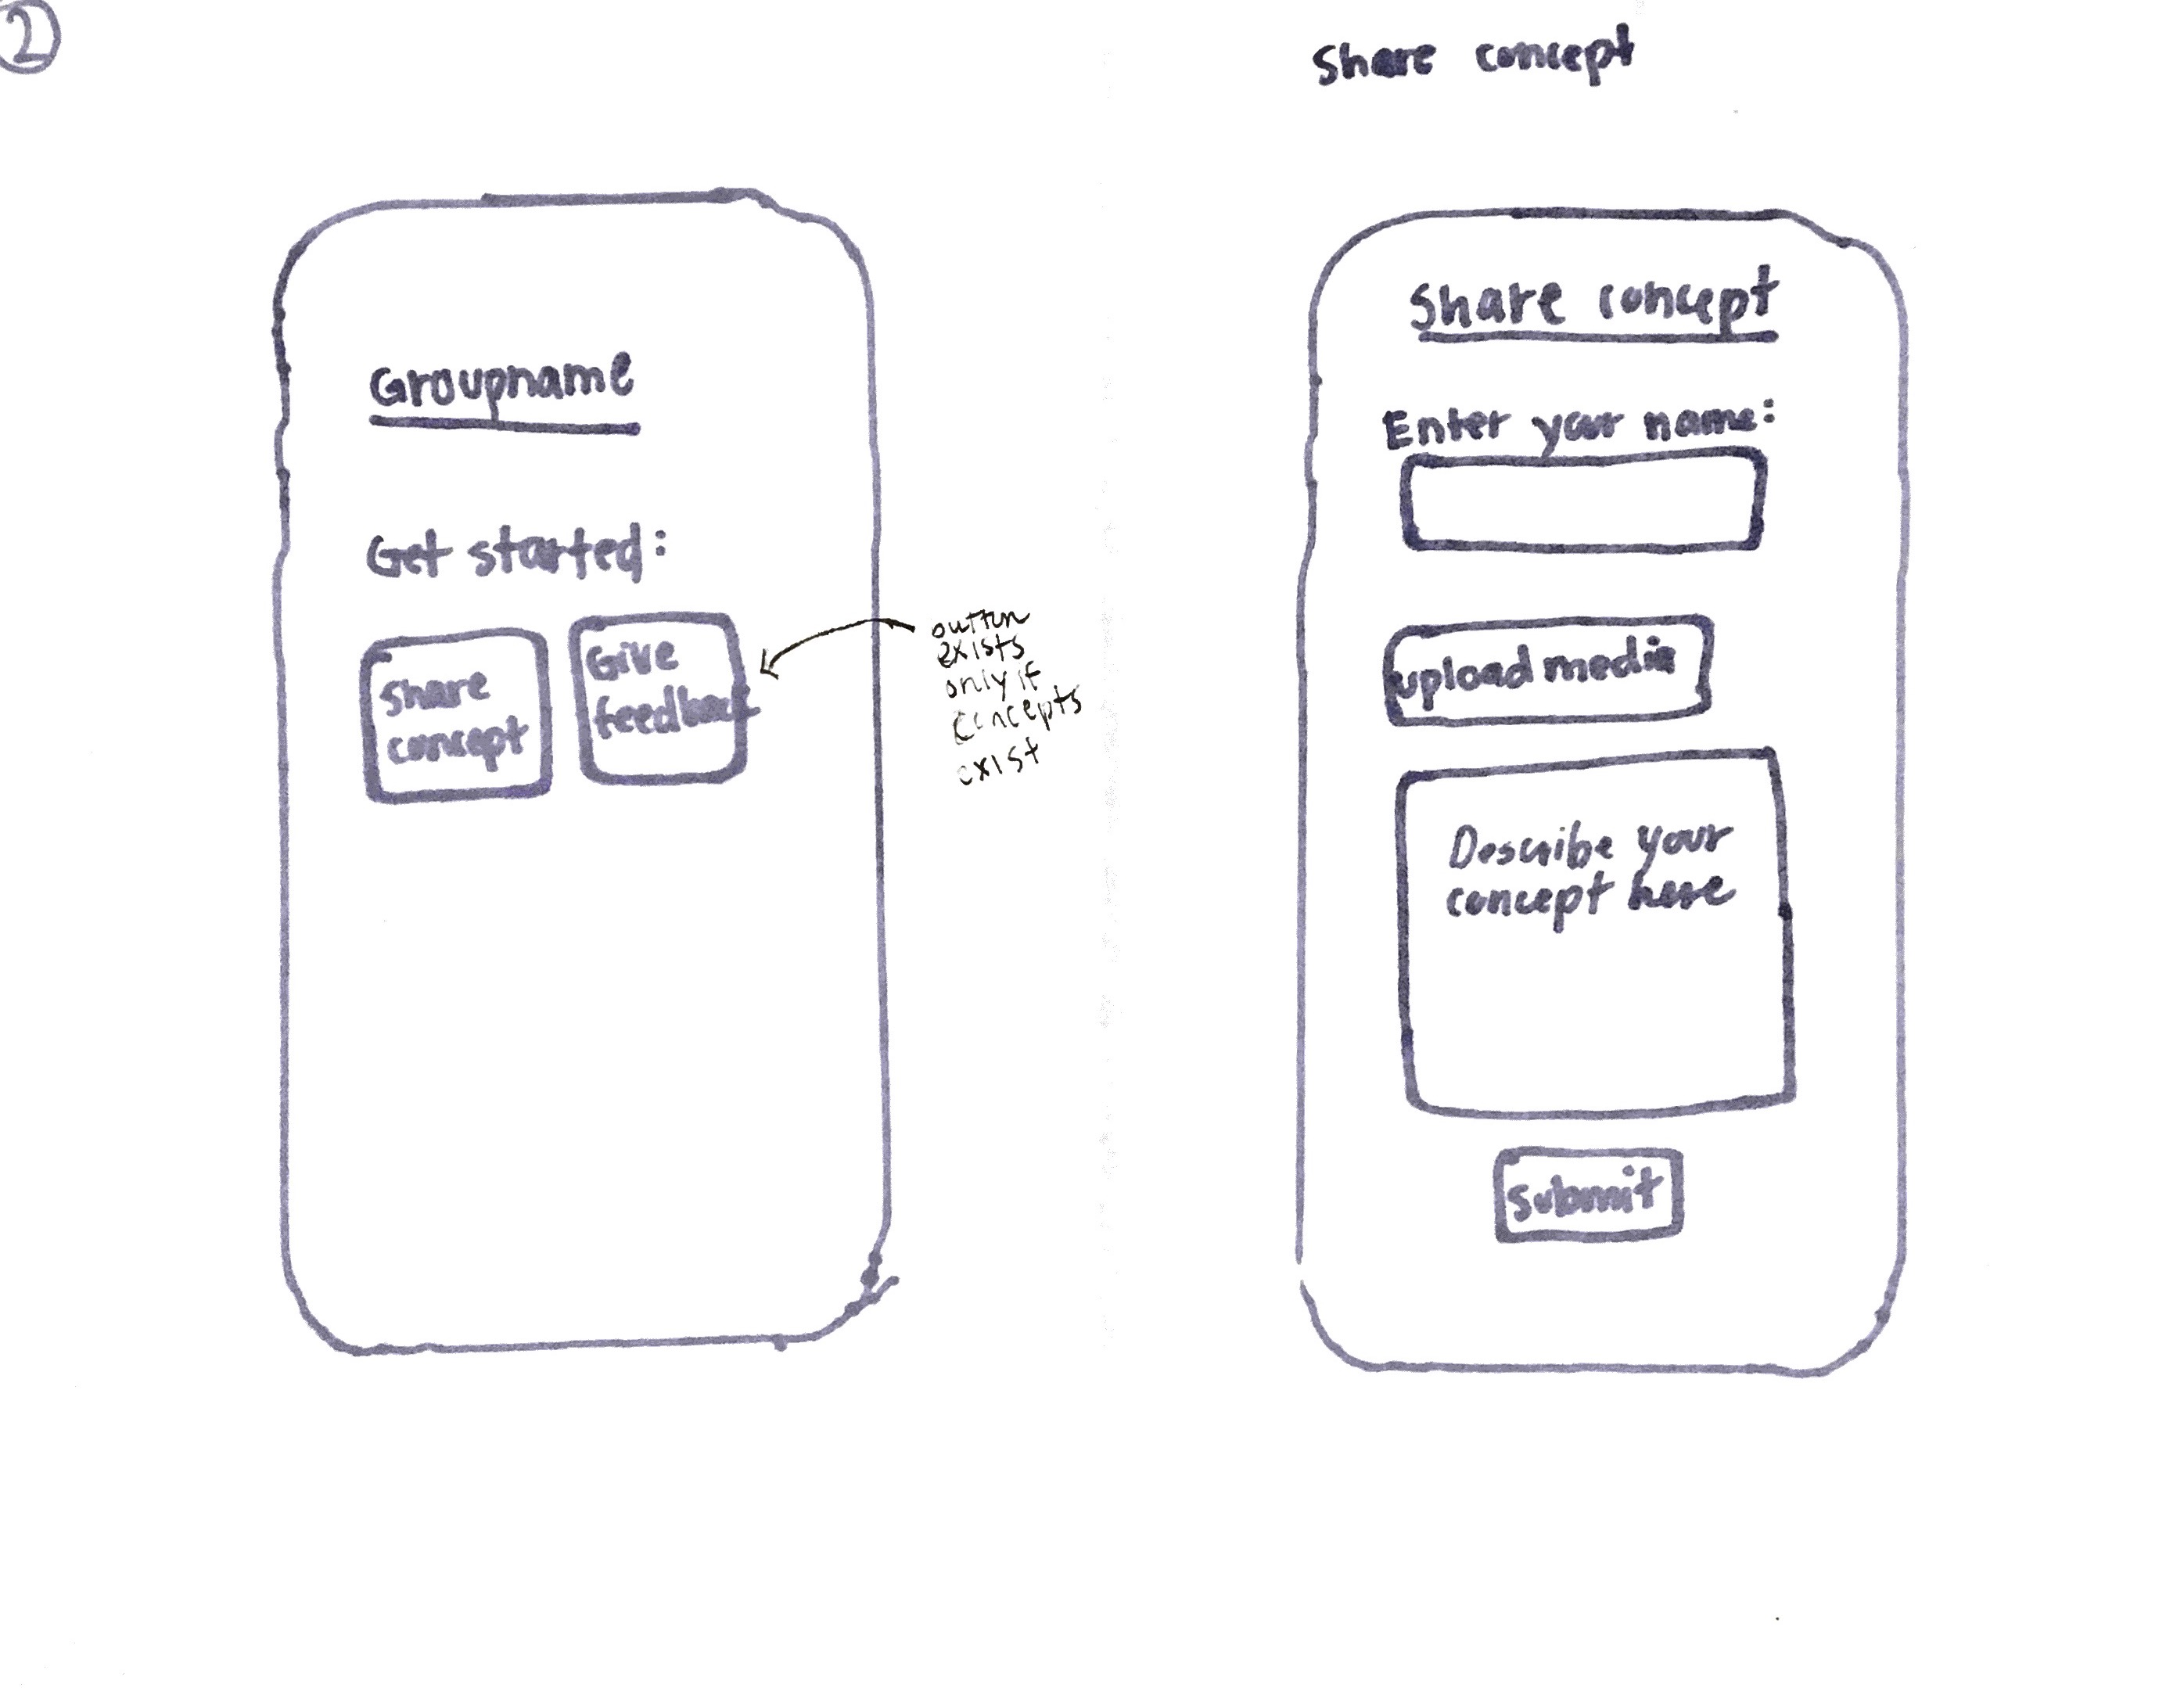 2
Groupname
Get started:
Share
concept
Give
feedback
button
exists
only if
concepts
exist
Share concept
Share concept
Enter your name:
upload media
Describe your
concept here
Submit